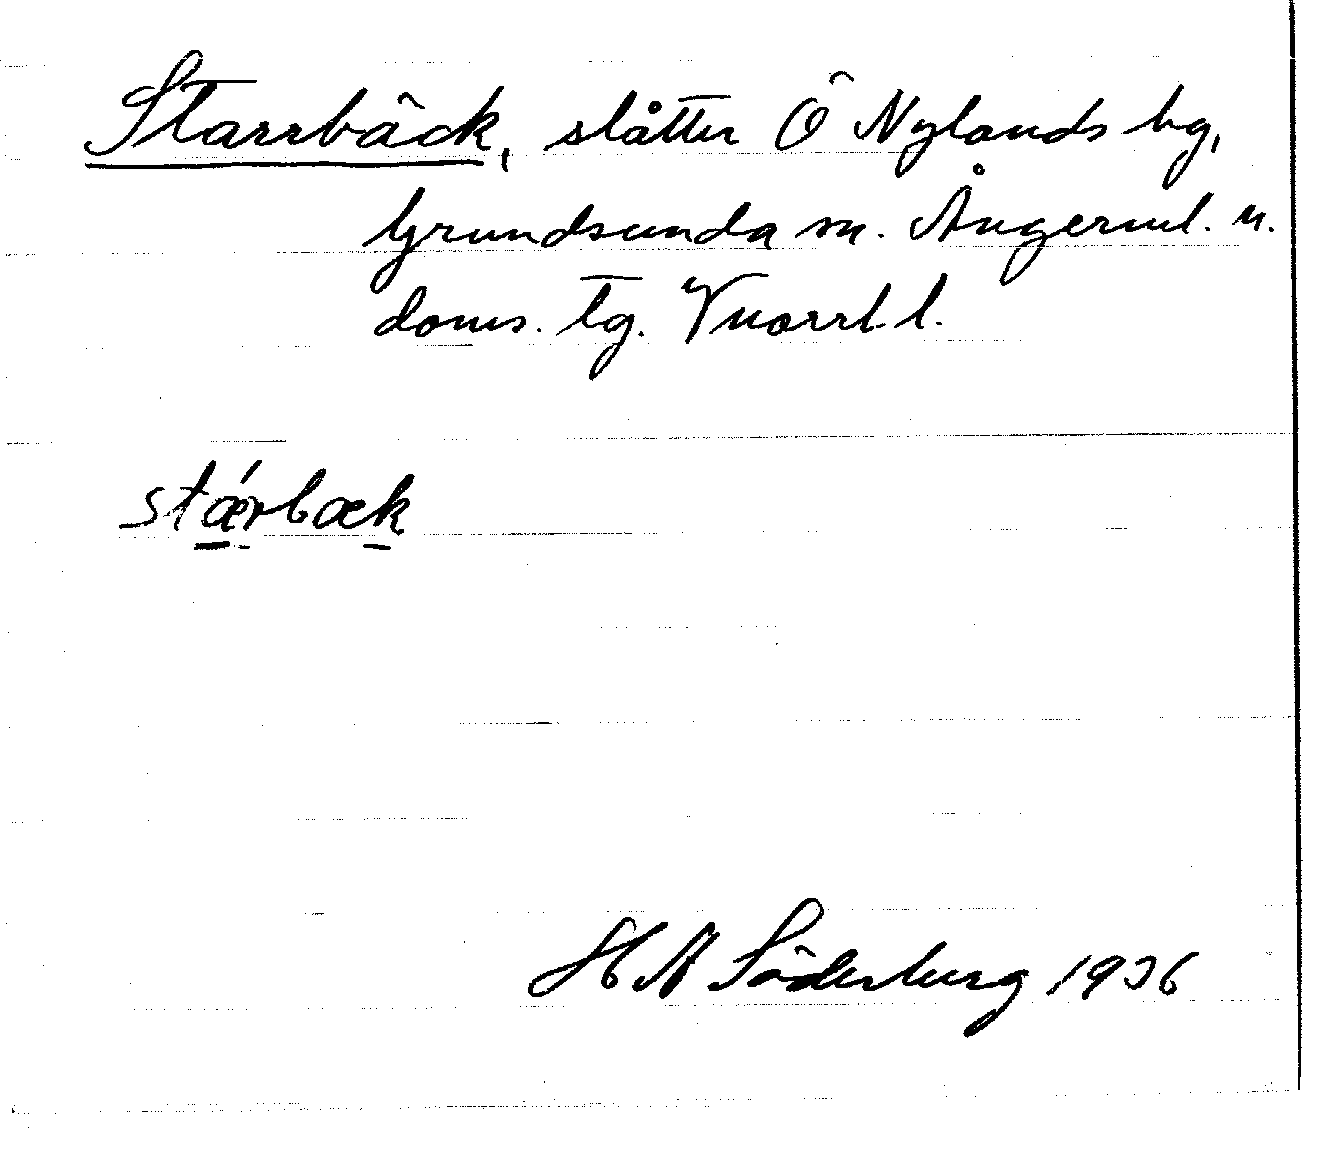 Starrbäck, slåtter Ö Nylands bg,
Grundsunda sn. Ångerml. n.
doms. tg. Västernorrl. l.
stǽrbæk
H A Söderberg 1936